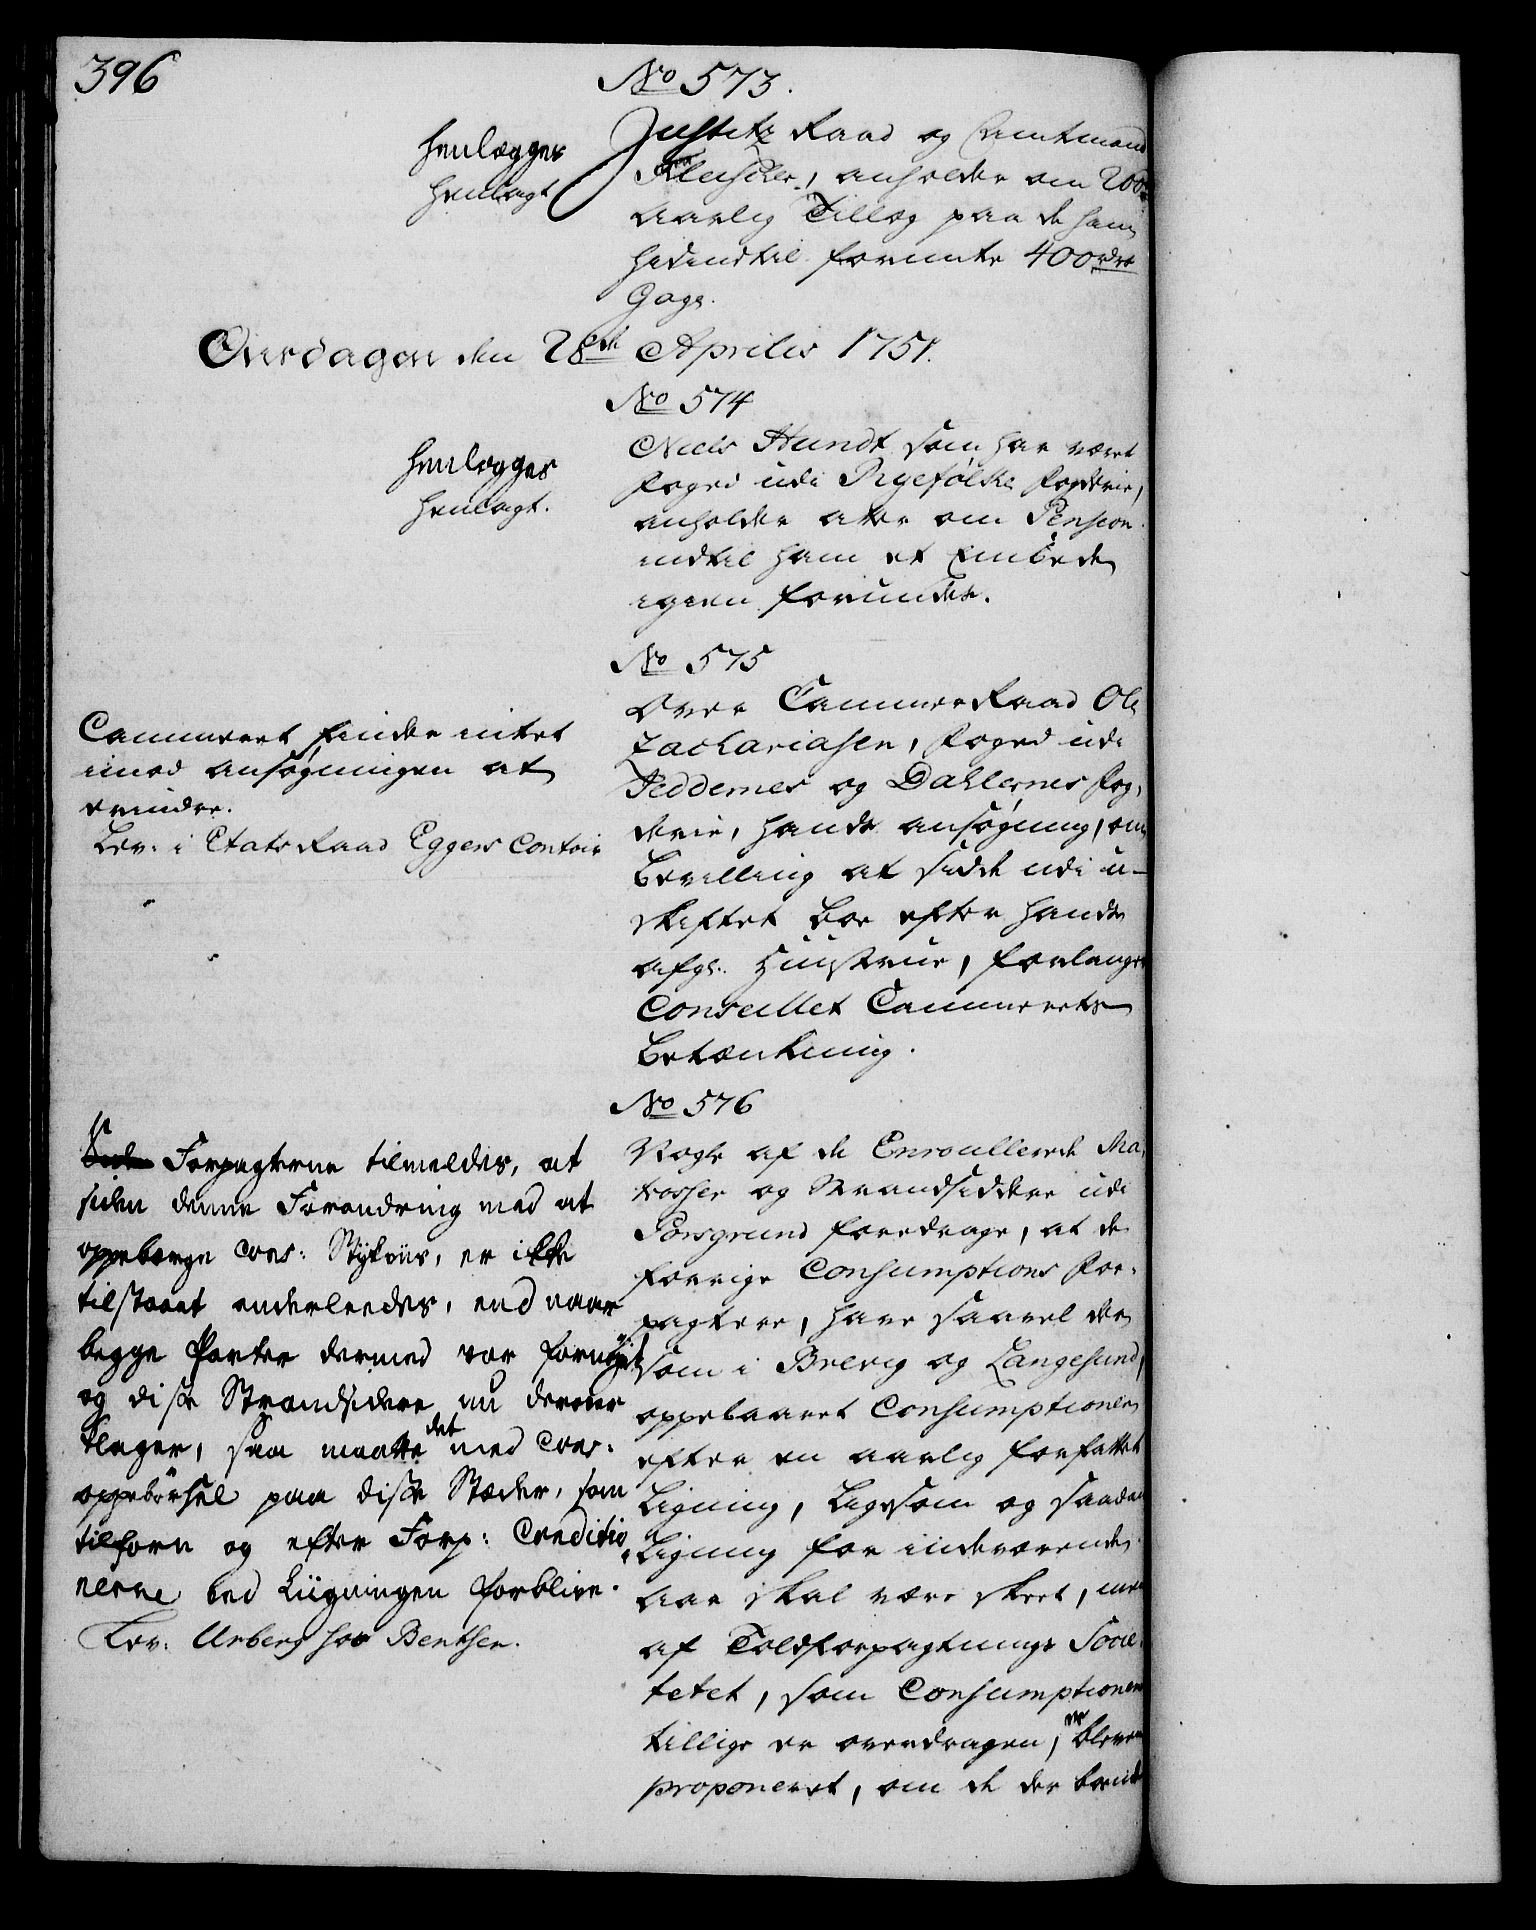 396
No 573.
henlægges
henlagt
Justitz Raad og Amtmand
anholder om 200
aarlig Tillæg paa de ham
hidindtil forunte 400 rdr
Gage.
Onsdagen den 28de Aprilis 1751.
No 574
henlægges
henlagt.
Niels Hundt som har været
Foged udi Ryefølke Fogderie,
anholder atter om Pension
indtil ham et Embede
igien forundes.
No 575
Cammeret finder intet
imod ansøgningen at
erindre.
Lev: i EtatsRaad Eggers Contoir
Over CammerRaad Ole
Zachariasen, Foged udi
Jeddernes og Dahlernes Fog,
derie, hands ansøgning, om
Bevilling at sidde udi u-
skiftet Boe efter hands
afg: Hustrue, forlanger
Conseillet Cammerets
Betænkning.
No 576
Forpagterne tilmeldes, at
siden denne Forandring med at
oppebærge Cons: Stykviis, er ikke
tilstaaet anderleedes, end naar
begge Parter dermed var fornøyet,
og disse Strandsidere nu derover
klager, saa maatte det med Cons:
oppebørsel paa disse Stæder, som
tilforn og efter Forp: Conditio,
nerne ved Liigningen forblive.
Lev: Urberg hos Benthsen.
Nogle af de Enroullerede Ma,
trosser og Strandsiddere udi
Porsgrund foredrage, at de
forrige Consumptions For,
pagtere, have saavel der
som i Brevig og Langesund,
oppebaaret Consumptionen
efter en aarlig forfattet
Ligning, ligesom og saadan
Ligning for indeværende
aar skal være skeet, men
af Toldforpagtnings Socie,
tetet, som Consumptionen
tillige er overdragen, er bleven
proponeret, om de der boende